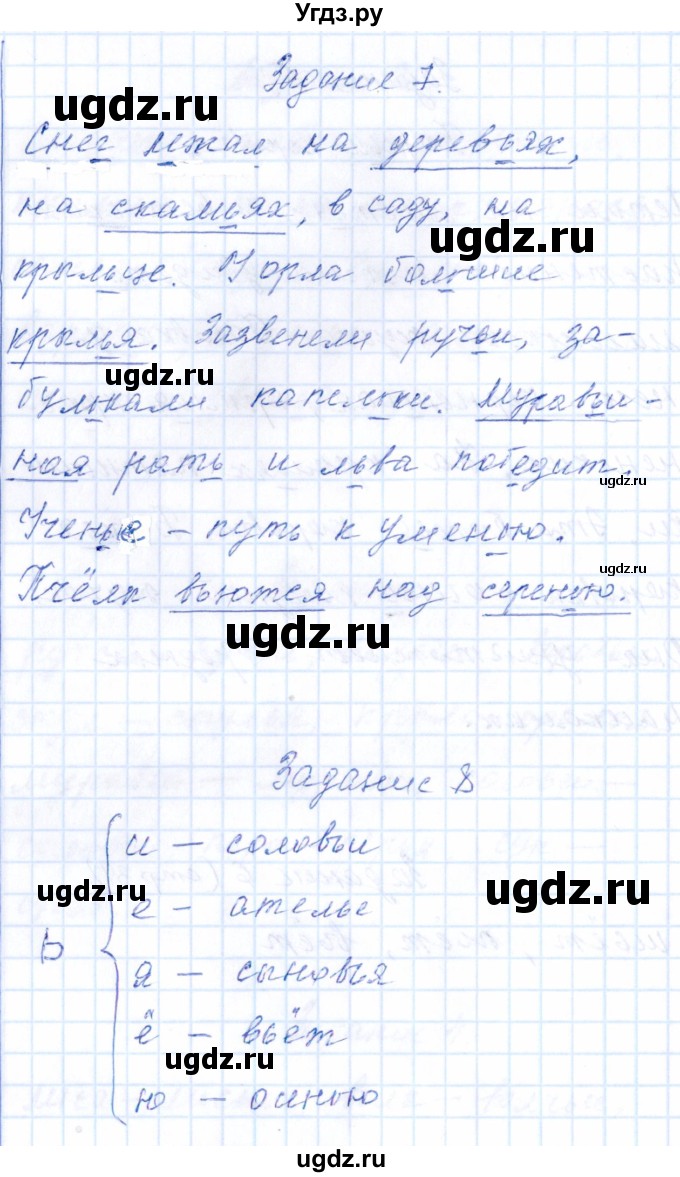 Угдз.ру
Задание 7.
ugdz.ru
Снег лежал на деревьях,
на скамьях, в саду, на
ugdz.ru
крыльце. У орла большие
крылья. Зазвенели ручьи, за-
ugdz.ru
булькали капельки. Муравьи-
ная рать и льва победит.
ugdz.ru
Ученье – путь к уменью.
ugdz.ru
Пчёлы вьются над сиренью.
ugdz.ru
Задание 8
и – соловьи
ugdz.ru
ugdz.ru
е – ателье
ь
я – сыновья
ё – вьёт
ugdz.ru
ю – осенью
ugdz.ru